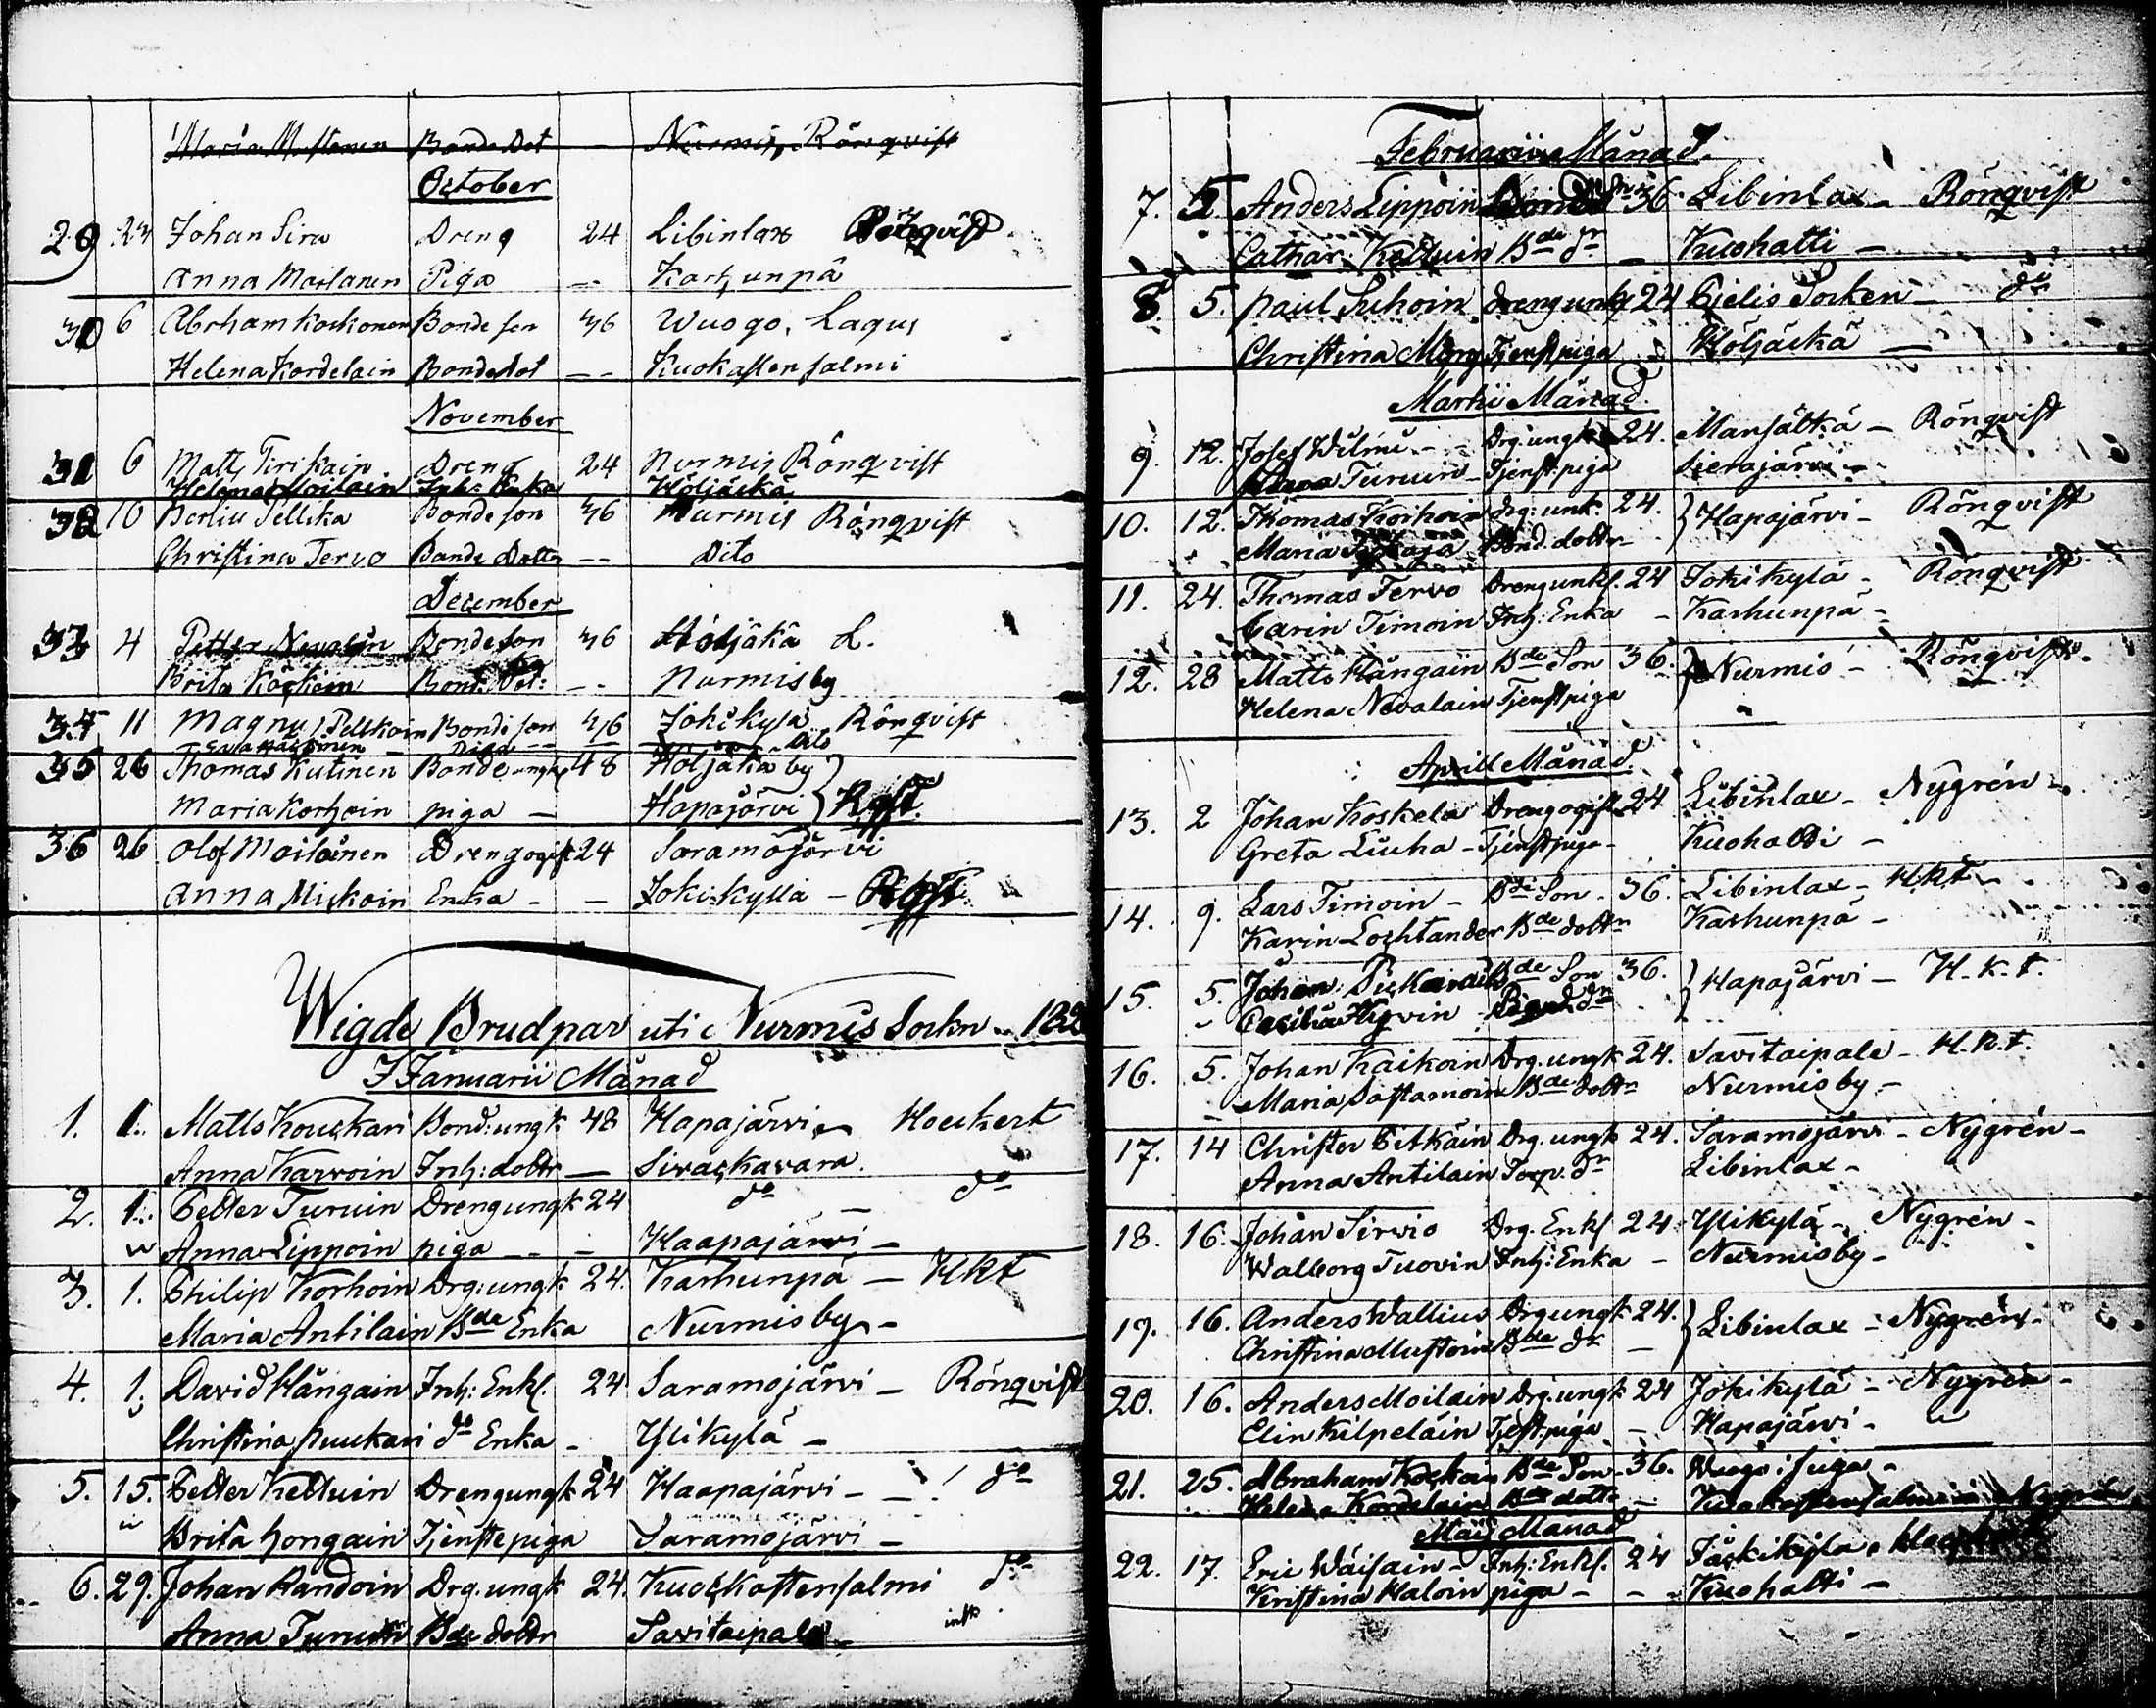 Maria Mustonen Bonde Dot — Nurmis, Rönqvist
October
29 23 Johan Sirw Dreng 24 Libinlax
Anna Moilanen Piga -- Karhunpä
30 6 Abrham Koskonen Bonde son 36 Wuogo. Lagus
Helena Kordelain Bonde Dot -- Kuokastensalmi
November
31 6 Matts Tirikain Dreng 24 Nurmis Rönqvist
Helena Moilain Inh: Enka Höljäskä
32 10 Bertiu Pellika Bonde son 36 Nurmis Rönqvist
Christina Tervo Bonde Dotter -- Dito
December
33 4 Petter Nevalain Bonde son 36 Höljäkä L.
Brita Kärkäin Bond. Dot: -- Nurmisby
34 11 Magnus Pellikain Bonde son 36 Jokikylä Rönqvist
Dito
35 26 Thomas Kutinen Bonde ungk 48 Höljäkä by
Maria Korhoin piga — Hapajärvi } Rqst.
36 26 Olof Moilainen Dreng ogift 24 Saramojärvi
Anna Miskoin Enka - - Jokikyllä - Rqst
Wigde Brudpar uti Nurmis Sockn 182
I Januarii Månad
1. 1. Matts Kouskari Bond: ungk 48 Hapajärvi - Hoeckert
Anna Karvoin Inh: dottr — Sivackavara.
2. 1. Petter Turuin Dreng ungk 24 do — do
Anna Lippoin piga - - - Haapajärvi -
3. 1. Philip Korhoin Drg: ungk 24. Karhunpä - Hkt
Maria Antilain Bde Enka Nurmisby -
4. 1. David Hångain Inh: Enkl. 24 Saramojärvi - Rönqvist
Christina Puukari do Enka - Ylikylä -
5. 15. Petter Keltuin Dreng ungk 24 Haapajärvi - - do
Brita Hongain Tjenstepiga Saramojärvi -
6. 29. Johan Randoin Drg. ungk 24. Kuoskastensalmi do
Anna Turuin Bde dottr Savitaipale -
Februarii Månad.
7. 5. Anders Lippoin 36. Libinlax - Rönqvist
Cathar. Keltuin Bde dr - Kuohatti -
8 5. Paul Suhoin Dreng unk 24 Pielis Socken - do
Christina Mårg Tjenst piga - Höljäskä -
Martii Månad.
9. 12. Josef Wilmi - - Drg. ungk 24. Mansätkä - Rönqvist
Anna Turuin - Tjenst: piga Sierajärvi -
10. 12. Thomas Korhoin Drg: unk. 24. } Hapajärvi - Rönqvist
Maria Bond. dottr -
11. 24. Thomas Tervo Dreng enkl. 24 Jokikylä - Rönqvist
Carin Timoin Inh: Enka - Karhunpä -
12. 28 Matts Hångain Bde Son 36. } Nurmis - Rönqvist -
Helena Nevalain Tjenst piga
Aprill Månad.
13. 2 Johan Koskela Dreng ogift 24 Libinlax - Nygrén -
Greta Liuha - Tjenst piga - Kuohatti -
14. 9. Lars Timoin - Bde Son - 36. Libinlax - Hkt -
Karin Lochtander Bde dottr Karhunpä -
15. 5. Johan Bde Son 36. } Hapajärvi - H.k.t.
16. 5. Johan Kaikoin Drg. ungk 24. Savitaipale - H.k.t.
Maria Sastamoin Bde dottr Nurmisby -
17. 14 Christer Pitkäin Drg. ungk 24. Saramojärvi - Nygrén -
Anna Antilain Torp. dr Libinlax -
18. 16. Johan Sirvio Drg. Enkl 24 Ylikylä - Nygrén -
Walborg Tuovin Inh: Enka - Nurmisby -
19. 16. Anders Wallius Drg ungk 24. } Libinlax - Nygrén -
Christina Mustoin Bde dr -
20. 16. Anders Moilain Drg. ungk 24 Jokikylä - Nygrén -
Elin Kilpeläin Tjenst: piga - Hapajärvi -
21. 25. Abraham Koskoin Bde Son 36. Wuogo: Juga -
Helena Kordelain Bde dottr Kuokastensalmi - Nygrén
Maij Månad
22. 17. Eric Wäisain - Inh: Enkl. 24 Jåkikylä -
Kristina Haloin piga - - Kuohatti -